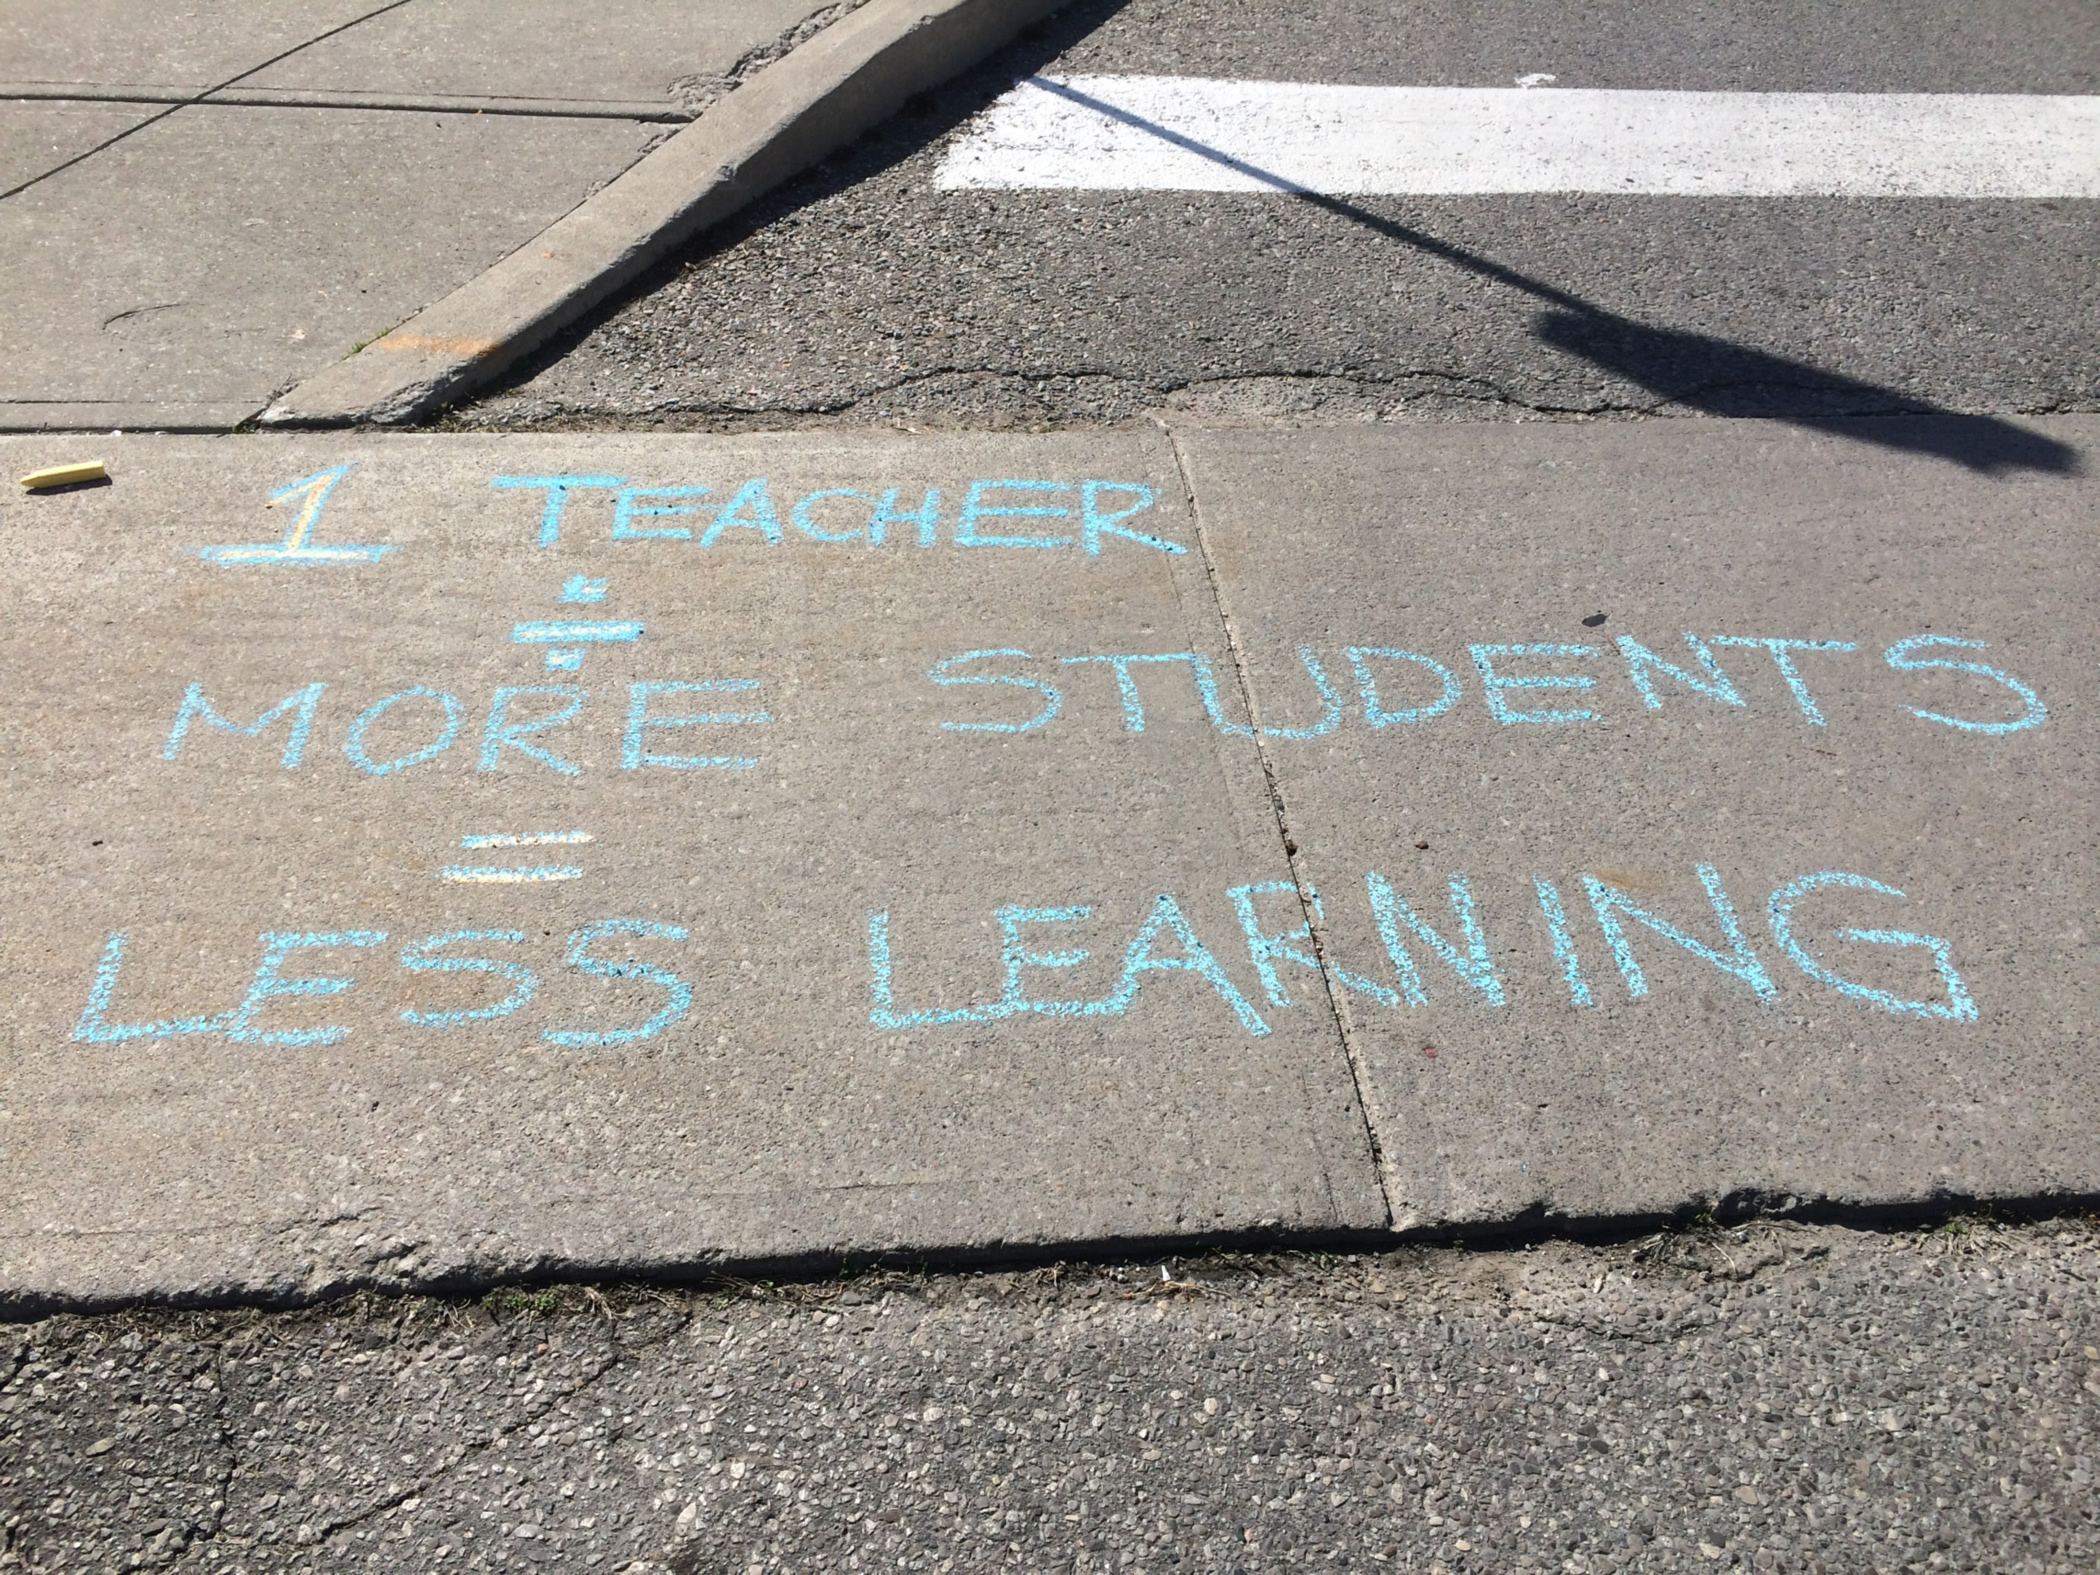 1 TEACHER
÷
MORE STUDENTS
=
LESS LEARNING